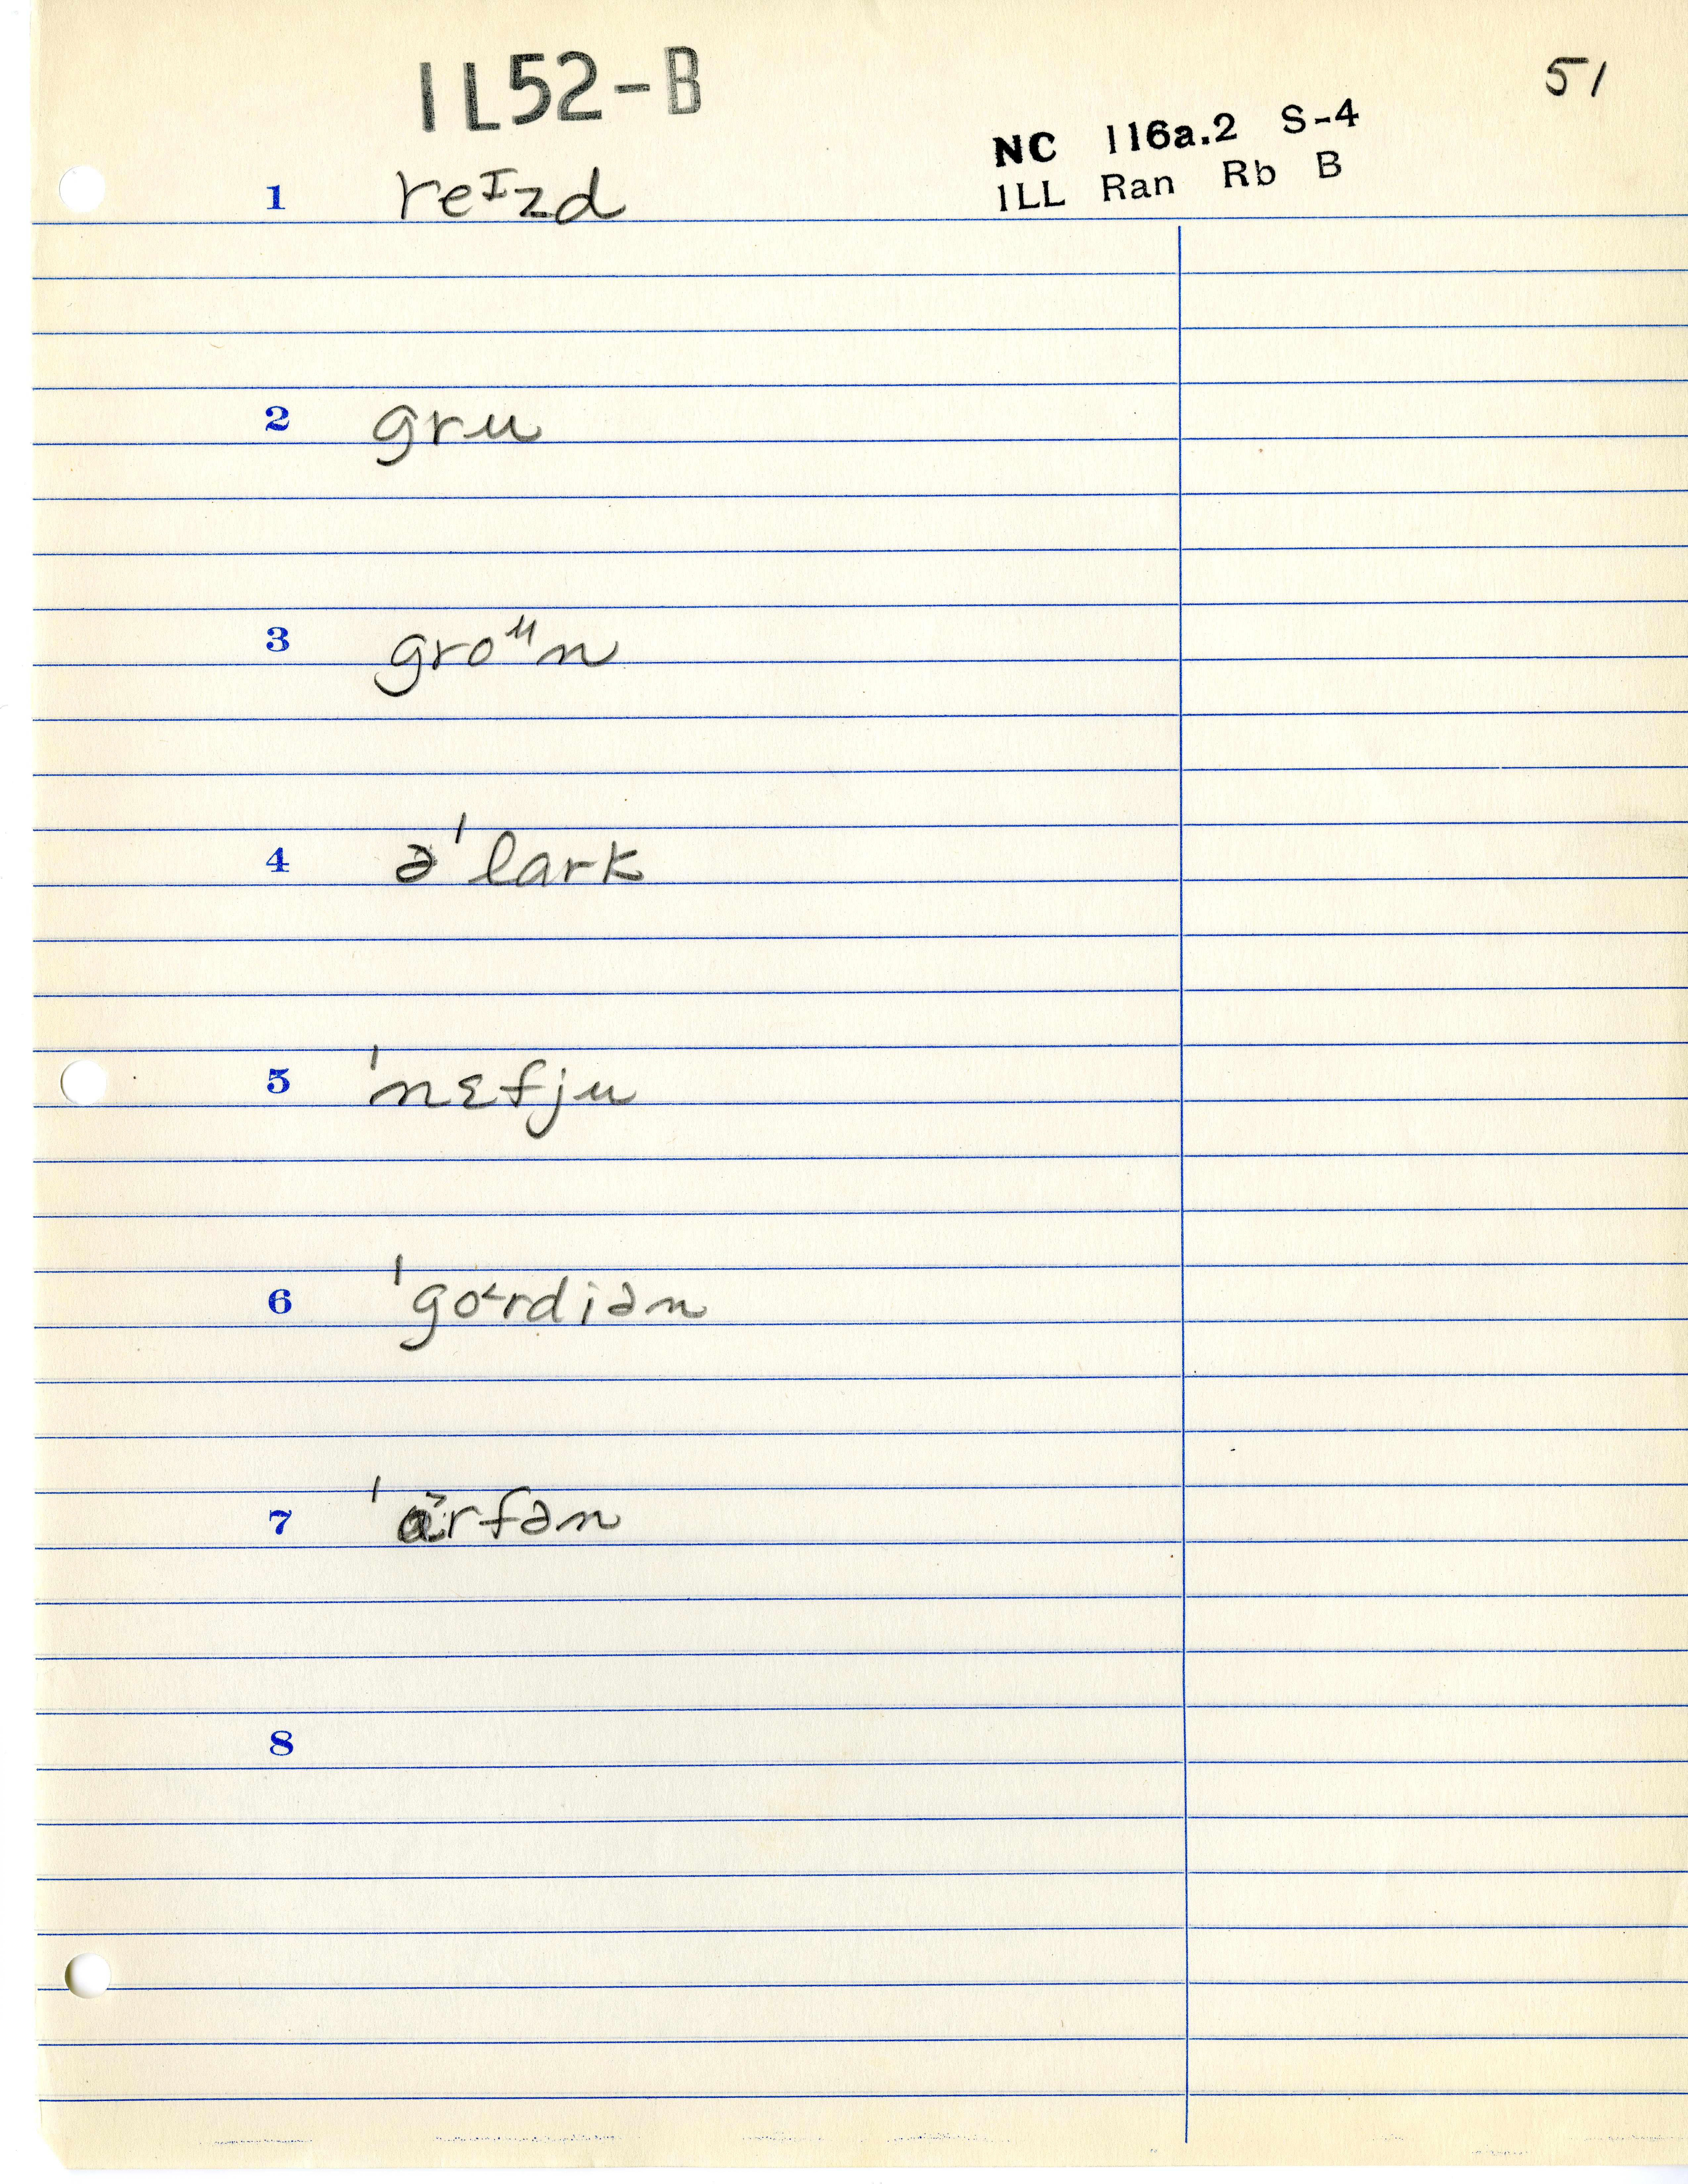 1L52-B
51
NC 116a.2 S-4
1LL Ran Rb B
1 reᴵzd
2 gru
3 groᵘn
4 ə'lark
5 'nɛfju
6 'go˂rdiən
7 'ɑ˃rfən
8